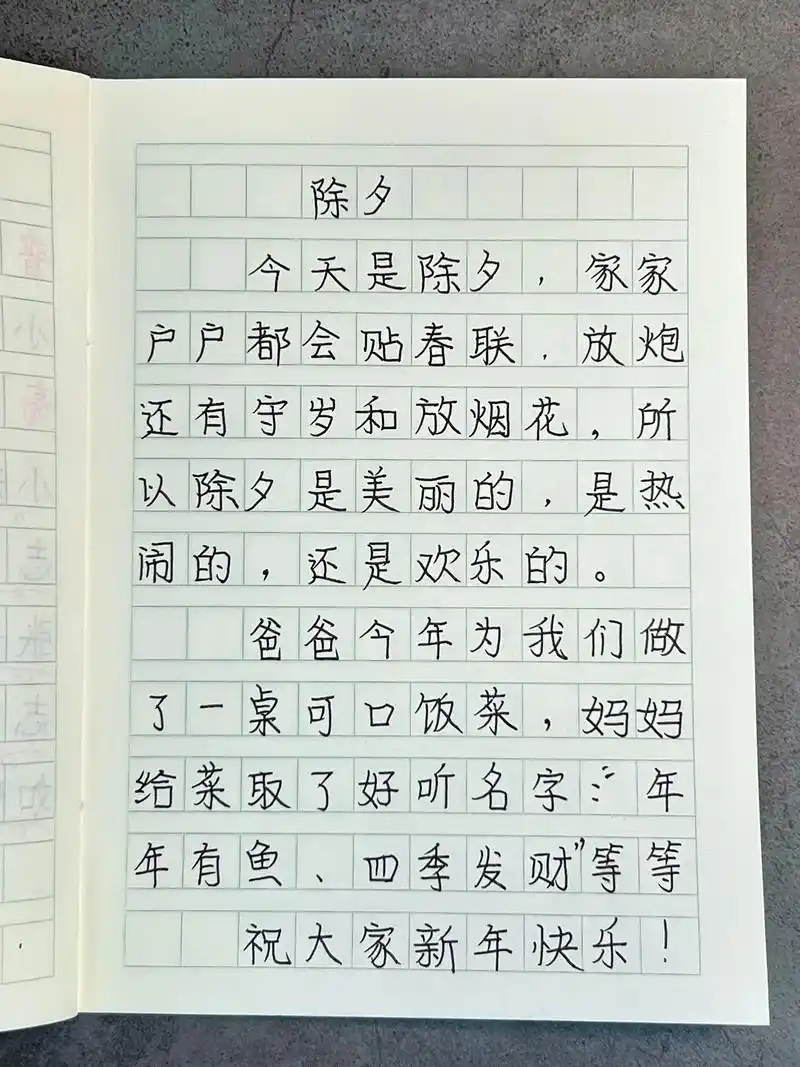 除夕
今天是除夕，家家
户户都会贴春联，放炮
还有守岁和放烟花，所
以除夕是美丽的，是热
闹的，还是欢乐的。
爸爸今年为我们做
了一桌可口饭菜，妈妈
给菜取了好听名字：“年
年有鱼、四季发财”等等
祝大家新年快乐！